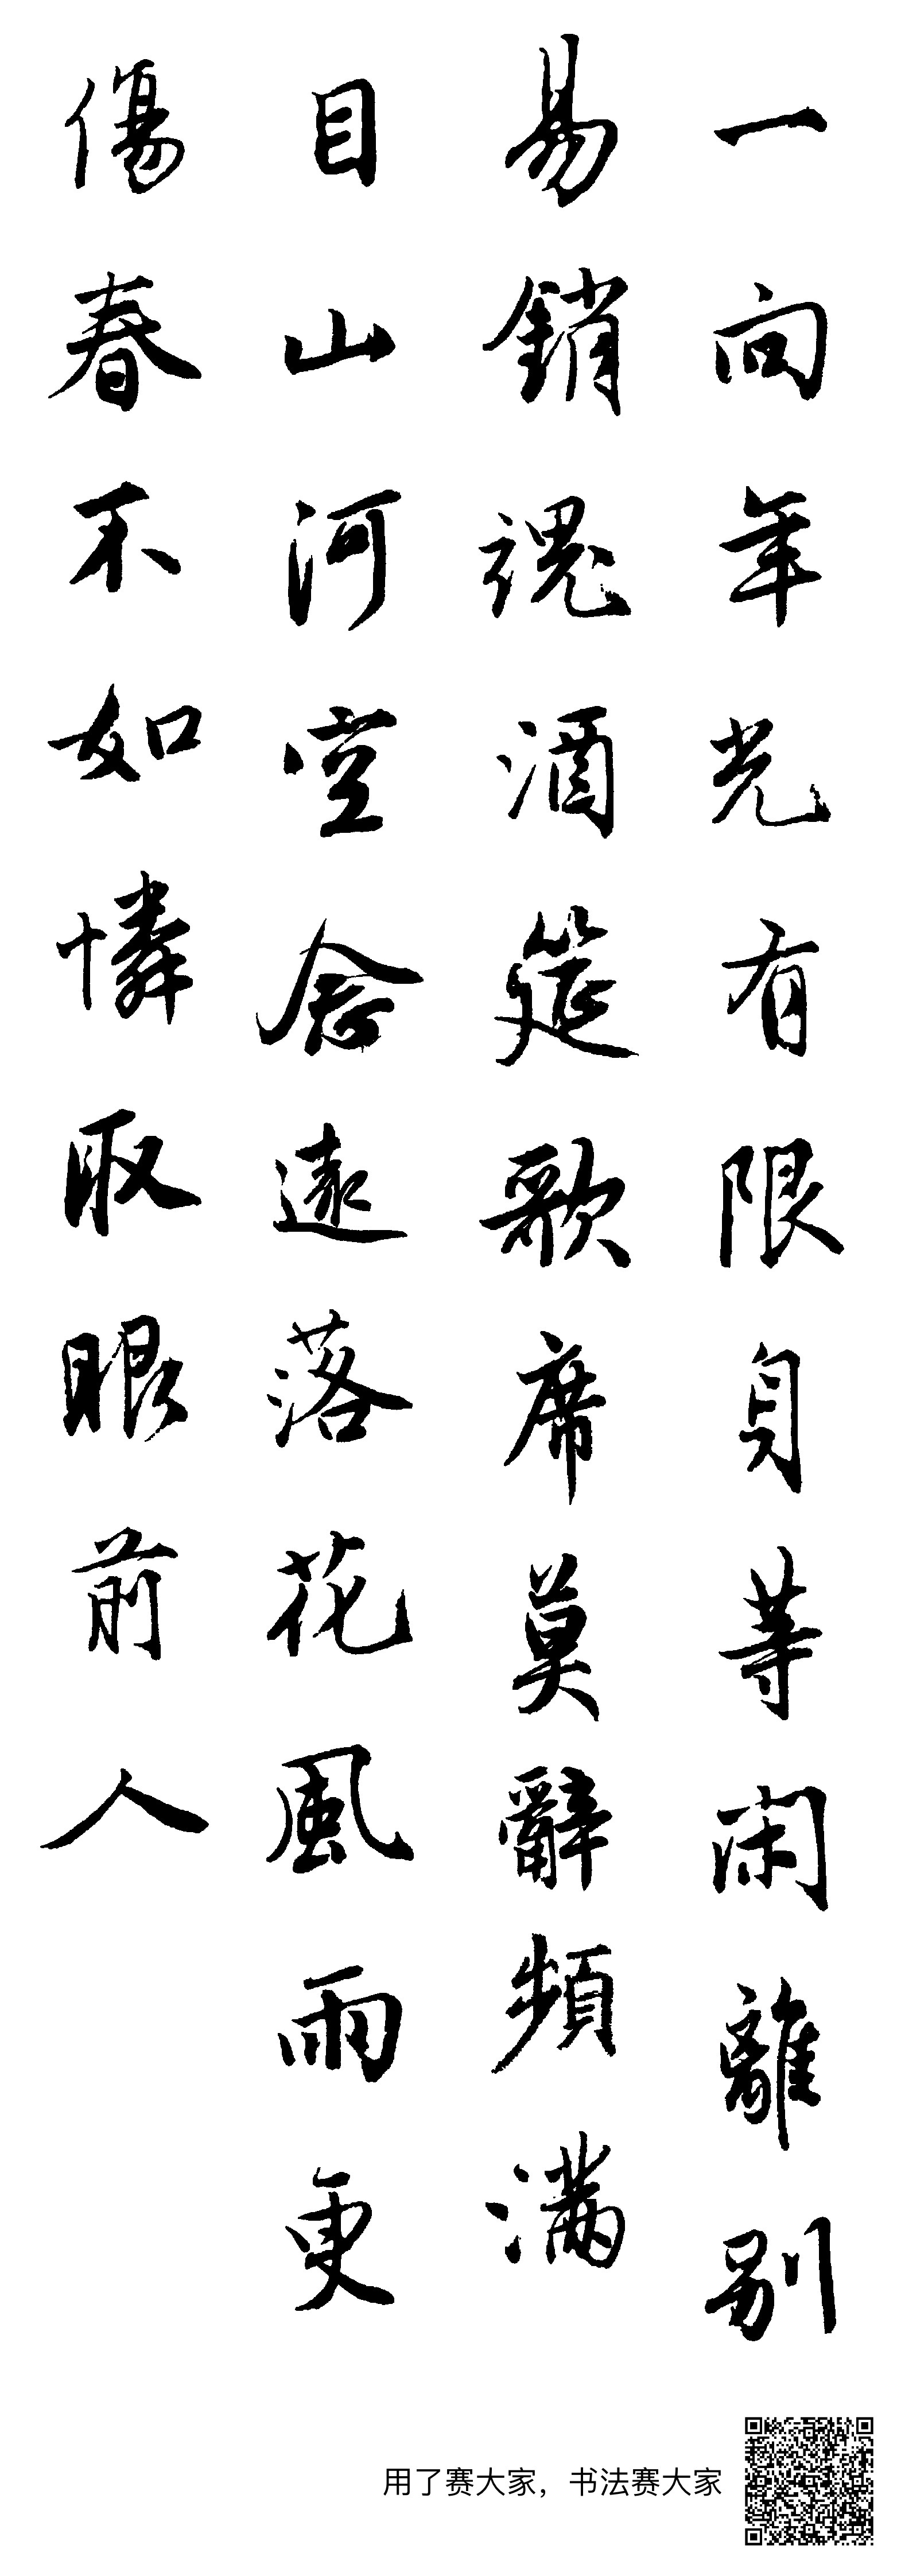 一向年光有限身等閑離别
易銷魂酒筵歌席莫辭頻滿
目山河空念遠落花風雨更
傷春不如憐取眼前人
用了赛大家，书法赛大家